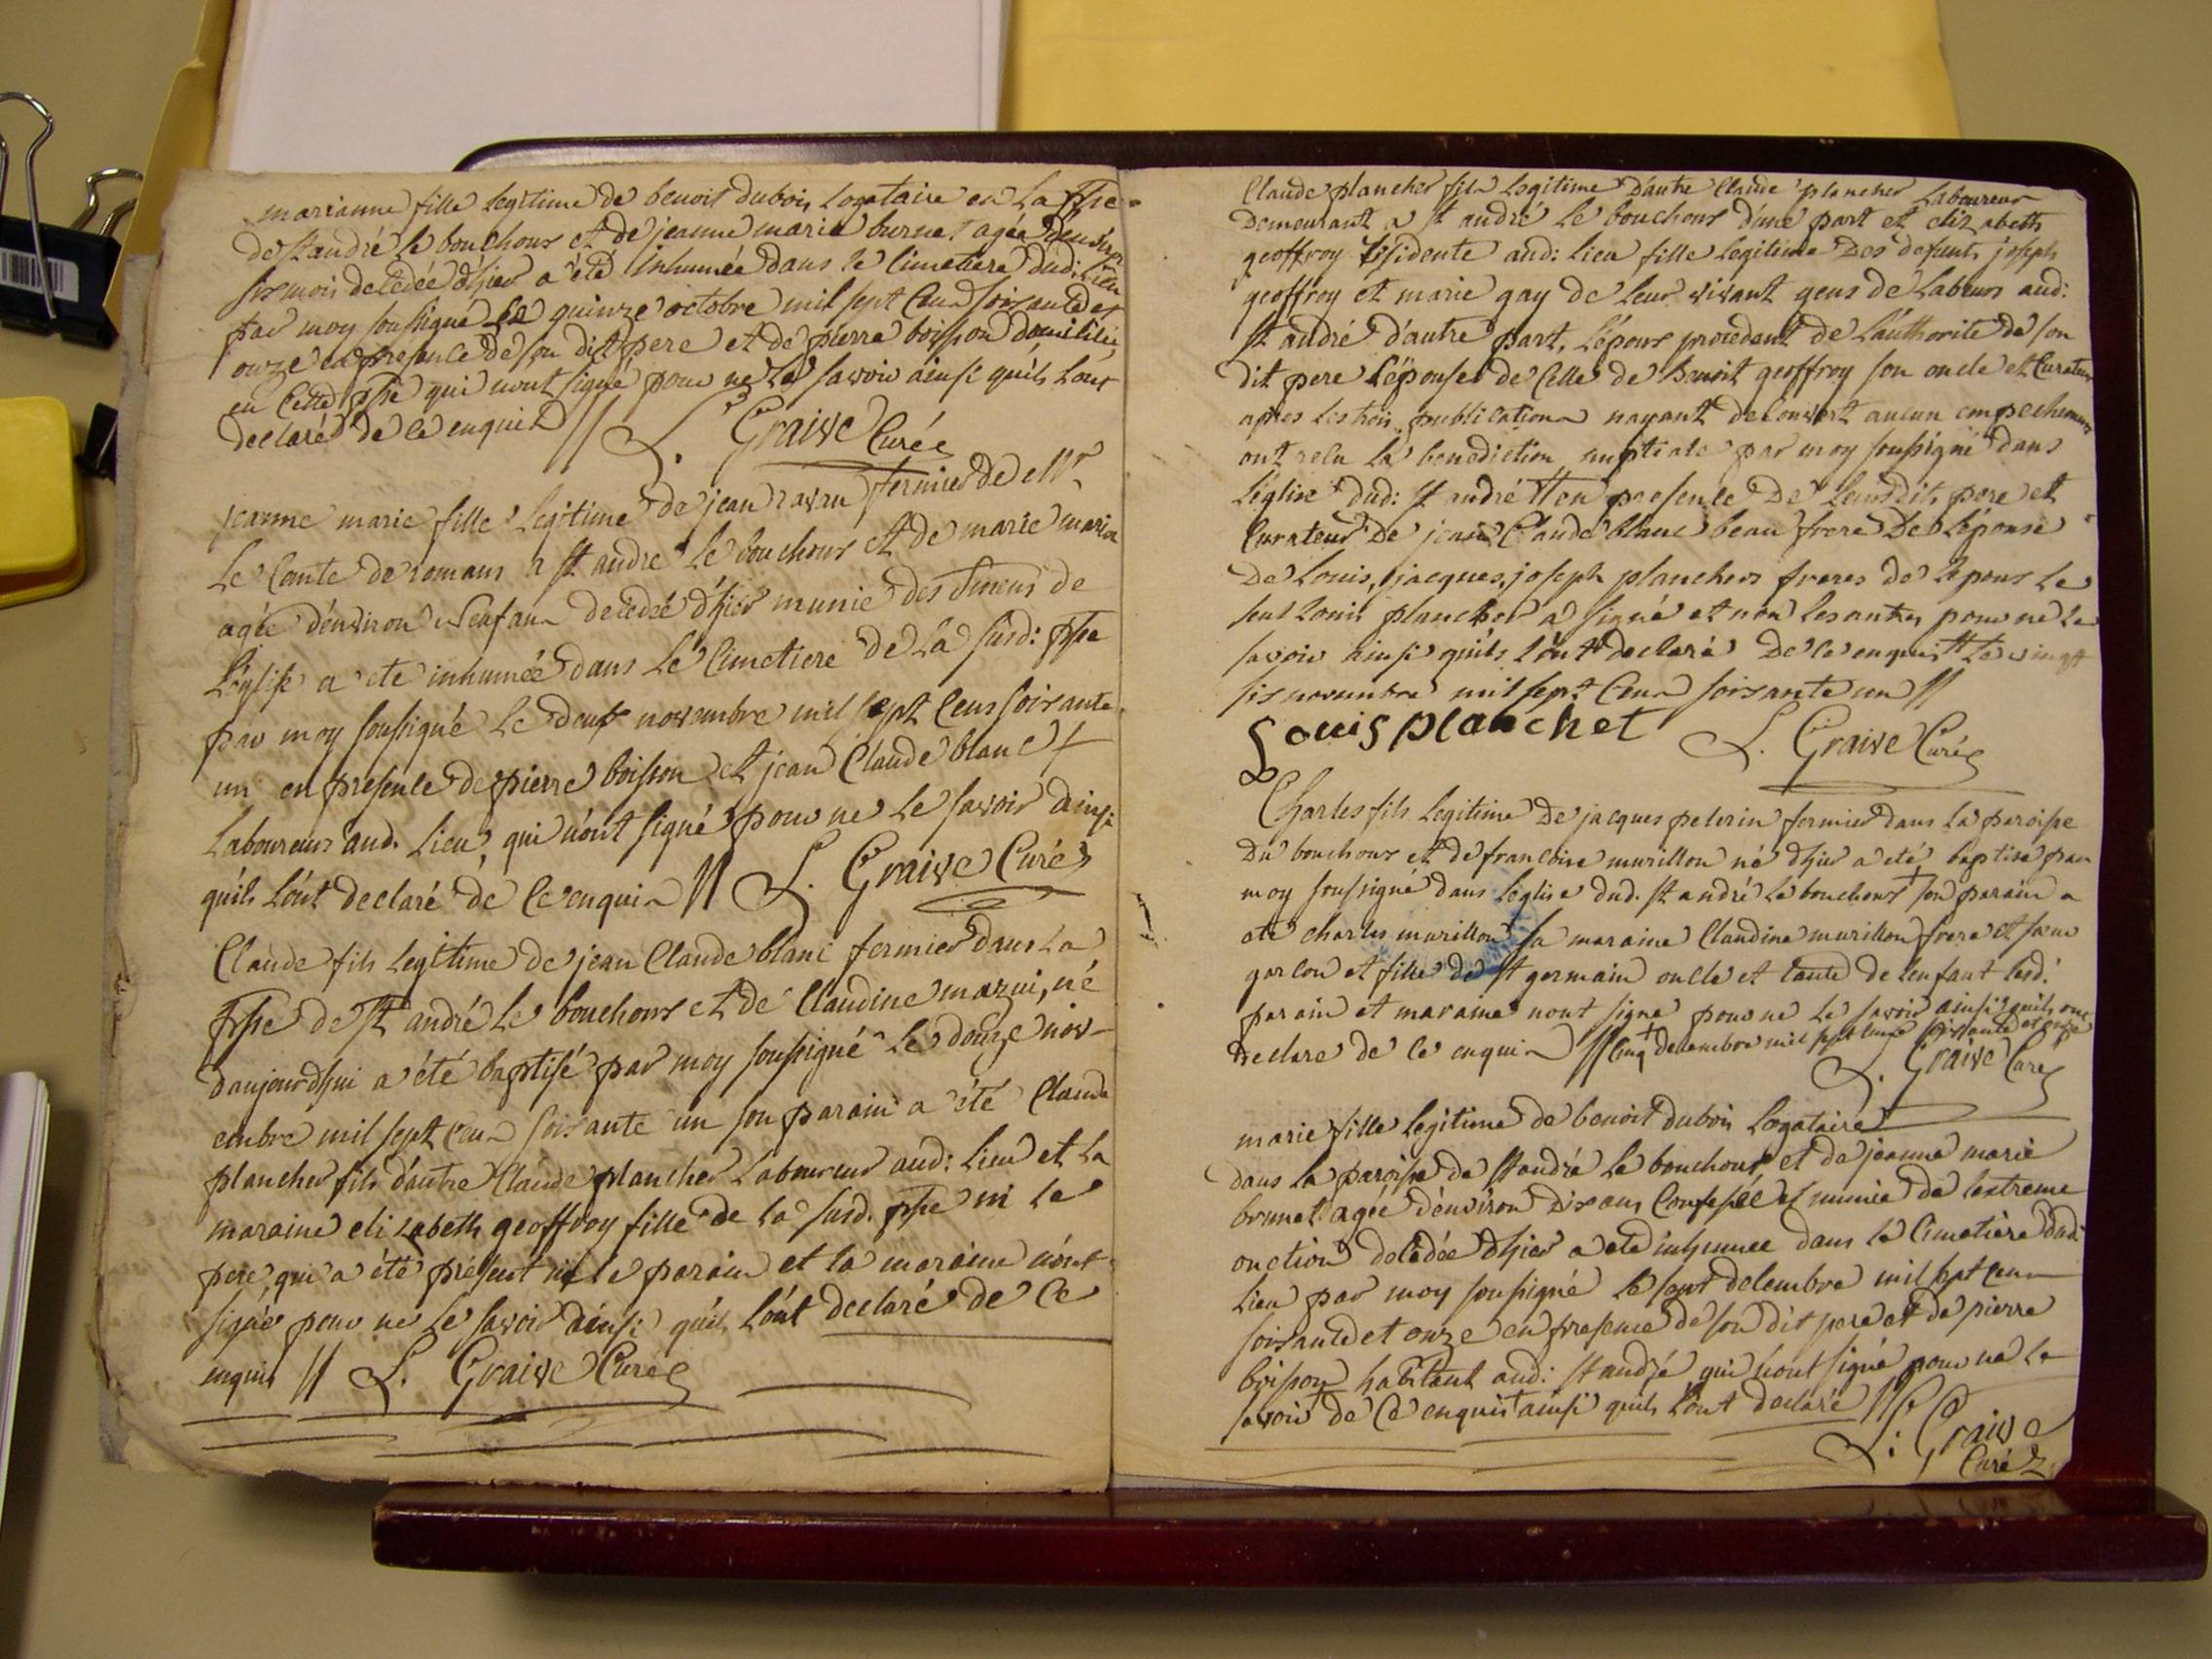 marianne fille legitime de benoit dubois logataire en la psse
de st andré le bouchoux et de jeanne marie burnet agée d'environ
six mois decedée d'hier a été inhumée dans le cimetiere dud: lieu
par moy soussigné le quinze octobre mil sept cens soixante et
onze en présence de son dit pere et de pierre boisson domicilié
en cette psse qui n'ont signé pour ne le savoir ainsi qu'ils l'ont
declaré de ce enquis // L. Graive Curé
jeanne marie fille legitime de jean ravau fermier de Mr
Le Comte de romans a st andre le bouchoux et de marie maria
agée d'environ neuf ans decedée d'hier munie des Smens de
L'eglise a ete inhumée dans le cimetiere de la susd: psse
par moy soussigné le deux novembre mil sept cens soixante
un en presence de pierre boisson et jean Claude blanc +
laboureurs aud. lieu, qui n'ont signé pour ne le savoir ainsi
qu'ils l'ont declaré de ce enquis // L. Graive Curé
Claude fils legitime de jean Claude blanc fermier dans la
psse de st andré le bouchoux et de Claudine mazui, né
d'aujourd'hui a été baptisé par moy soussigné le douze nov-
embre mil sept cens soixante un son parain a été Claude
plancher fils d'autre Claude plancher laboureur aud: lieu et la
maraine elizabeth geoffroy fille de la susd. psse ni le
pere, qui a été présent ni le parain et la maraine n'ont
signé pour ne le savoir ainsi qu'ils l'ont declaré de ce
enquis // L. Graive Curé
Claude plancher fils legitime d'autre Claude plancher Laboureur
demeurant a st andré le bouchoux d'une part et elizabeth
geoffroy residente aud: lieu fille legitime des defunts joseph
geoffroy et marie gay de leur vivant gens de labeurs aud:
st andré d'autre part, l'epoux procedant de l'authorite de son
dit pere l'epouse de celle de Benoit geoffroy son oncle et curateur
apres les trois publications nayant decouvert aucun empechement
ont recu la benediction nuptiale par moy soussigné dans
l'eglise dud: st andré en presence de leursdits pere et
Curateur de jean Claude blanc beau frere de l'épouse
de louis, jacques, joseph planchers freres de l'epoux le
seul louis plancher a signé et non les autres pour ne le
savoir ainsi qu'ils l'ont declaré de ce enquis le vingt
six novembre mil sept cens soixante un //
Louis planchet L. Graive Curé
Charles fils legitime de jacques pelerin fermier dans la paroisse
du bouchoux et de francoise murillon né d'hier a eté baptisé par
moy soussigné dans l'eglise dud. st andré le bouchoux + son parain a
eté charles murillon sa maraine Claudine murillon frere et soeur
garcon et fille de st germain oncle et tante de l'enfant lesd:
parain et maraine n'ont signé pour ne le savoir ainsi qu'ils ont
declaré de ce enquis // + cinq decembre mil sept cens soixante et onze
L. Graive Curé
marie fille legitime de benoit dubois logataire
dans la paroisse de st andré le bouchoux et de jeanne marie
brunet agée d'environ dix ans Confessée et munie de l'extreme
onction decedée d'hier a eté inhumee dans le cimetiere dud:
lieu par moy soussigné le sept decembre mil sept cens
soixante et onze en presence de son dit pere et de pierre
boisson habitant aud: st andré qui n'ont signé pour ne le
savoir de ce enquis ainsi qu'ils l'ont declaré //
L: Graive
Curé